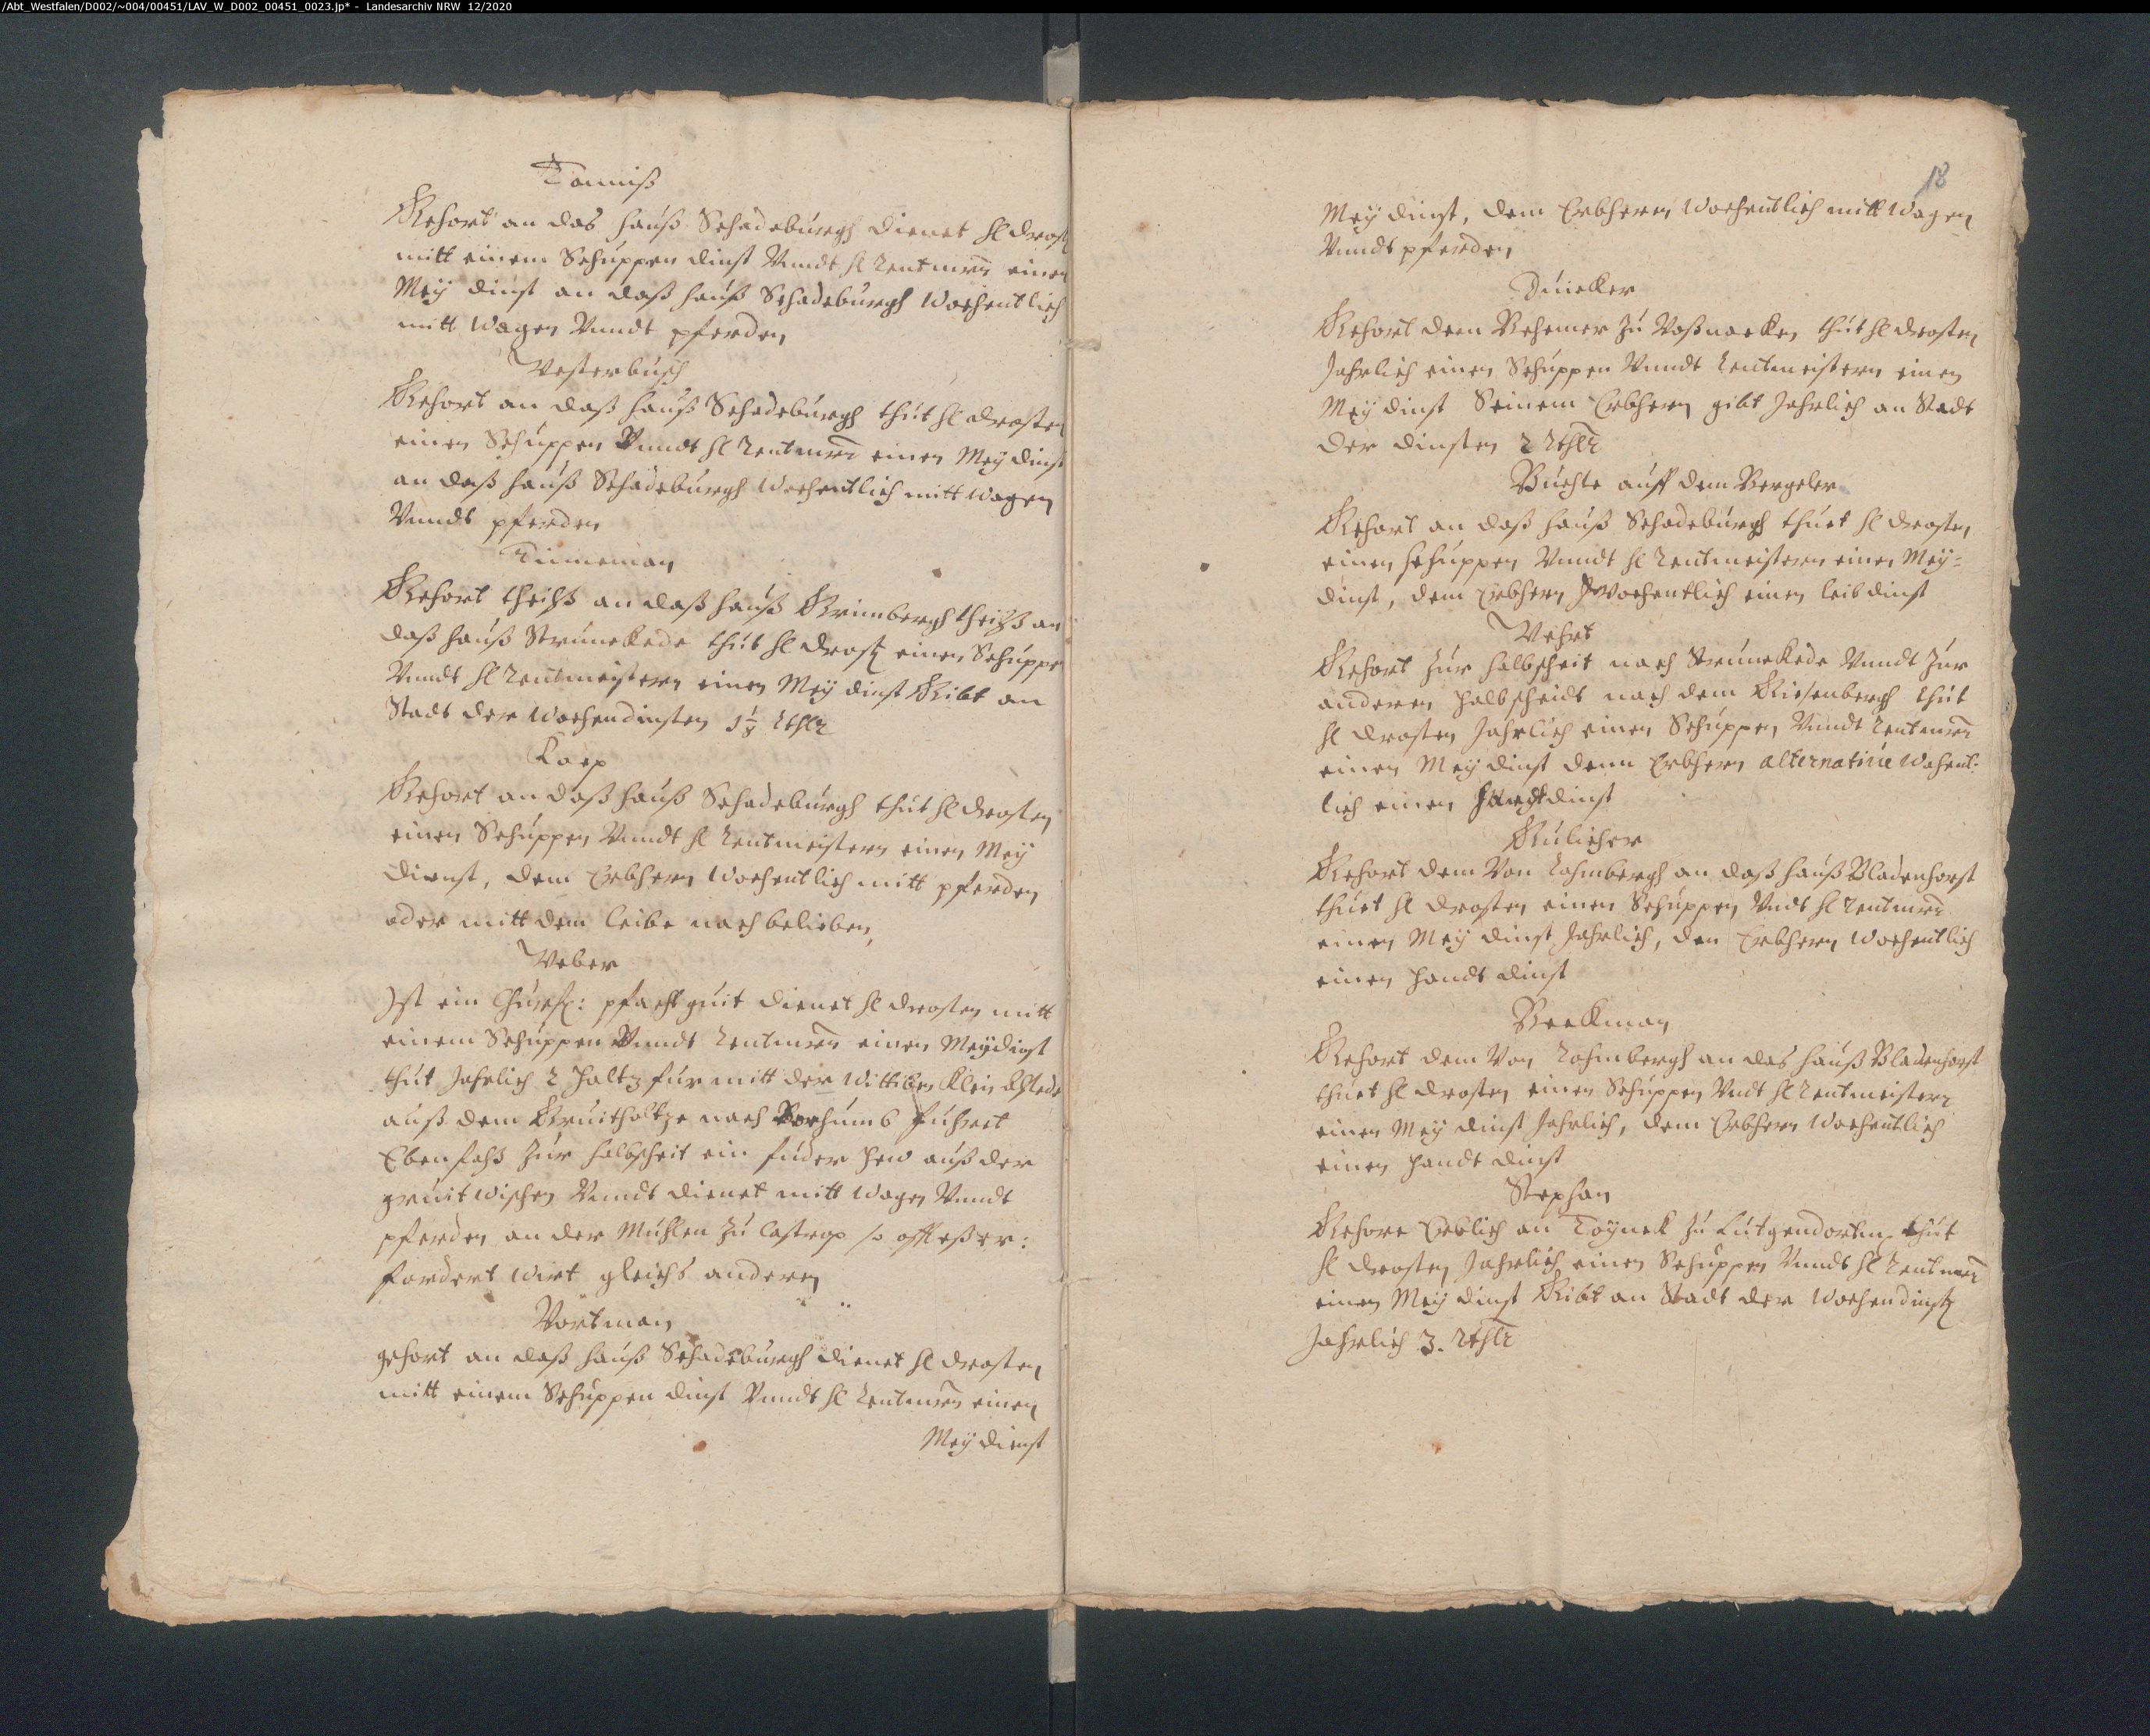 /Abt_Westfalen/D002/~004/00451/LAV_W_D002_00451_0023.jp* - Landesarchiv NRW 12/2020
Tonniß
Gehort an das hauß Schadeburgh dienet H drost
mitt einem Schuppen dinst Vnndt H Rentmrn einen
Meÿ dinst an daß hauß Schadeburgh wochentlich
mitt wagen Vnndt pferden
Vesterbusch
Gehort an daß hauß Schadeburgh thut H drosten
einen Schuppen Vnndt H Rentmrn einen Meÿ dinst
an daß hauß Schadeburgh wochentlich mitt wagen
Vnndt pferden
Tinneman
Gehort theilß an daß hauß Grimbergh theilß an
daß hauß Strunckede thut H drost einen Schuppe
Vnndt H Rentmeistern einen Meÿ dinst Gibt an
Stadt der wochendinsten 1½ Rthlr
Koep
Gehort an daß hauß Schadeburgh thut H drosten
einen Schuppen Vnndt H Rentmeistern einen Meÿ
dienst, dem Erbhern wochentlich mitt pferden
oder mitt dem leibe nach belieben,
Veber
Ist ein Churf: pfacht guit dienet H drosten mitt
einem Schuppen Vnndt Rentmrn einen Meÿdinst
thut Jahrlich 2 holtz fur mitt der Wittiben Klein
auß dem Gruitholtze nach Bochumb fuhret
Ebenfalß zur halbscheit ein fuder hew auß der
gruit wischen Vnndt dienet mitt wagen Vnndt
pferden an der Muhlen zu Castrop so offt eß er:
fordert wirt gleichs anderen
Vortman
gehort an daß hauß Schadeburgh dienet H drosten
mitt einem Schuppen dinst Vnndt H Rentmrn einen
Meÿ dienst
18
Meÿ dinst, dem Erbhern wochentlich mitt wagen
Vnndt pferden
Duncker
Gehort dem Rehemer zu Voßnacken thut H drosten
Jahrlich einen Schuppen Vnndt Rentmeistern einen
Meÿ dinst Seinem Erbhern gibt Jahrlich an Stadt
der dinsten 2 Rthlr
Buchte auff dem Bergeler
Gehort an daß hauß Schadeburgh thuet H drosten
einen schuppen Vnndt H Rentmeistern einen Meÿ=
dinst, dem Erbhern wochentlich einen leib dinst
Vehrt
Gehort zur halbscheit nach Strunckede Vnndt zur
anderen halbscheidt nach dem Giesenbergh thut
H drosten Jahrlich einen Schuppen Vnndt Rentmrn
einen Meÿ dinst denn Erbhern alternative wochent-
lich einen handtdinst
Gulicher
Gehort dem Von Rohmbergh an daß hauß Bladenhorst
thuet H drosten einen Schuppen Vndt H Rentmrn
einen Meÿ dinst Jahrlich, den Erbhern wochentlich
einen handt dinst
Beckman
Gehort dem Von Rohmbergh an das hauß Bladenhorst
thuet H drosten einen Schuppen Vndt H Rentmeistern
einen Meÿ dinst Jahrlich, dem Erbhern wochentlich
einen handt dinst
Stephan
Gehore Erblich an Toÿnck zu Lutgendortm thut
H drosten Jahrlich einen Schuppen Vnndt H Rentmrn
einen Meÿ dinst Gibt an Stadt der wochendinst
Jahrlich 3. Rthlr